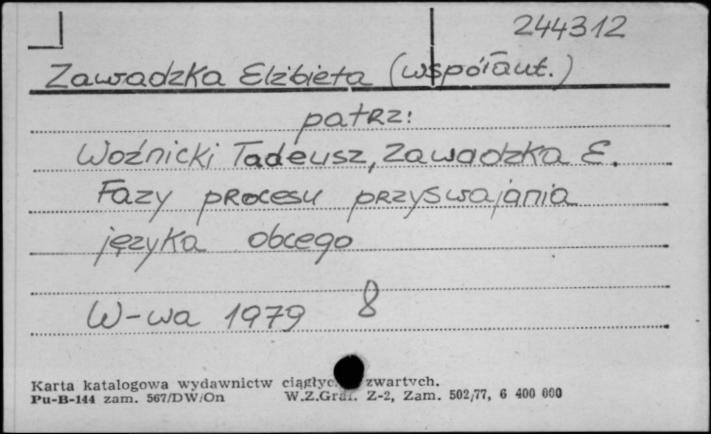 244312
Zawadzka Elżbieta (współaut.)
patrz:
Woźnicki Tadeusz, Zawadzka E.
Fazy procesu przyswajania
języka obcego
W-wa 1979 8
Karta katalogowa wydawnictw zwartych.
Pu-B-144 zam. 567/DW/On W.Z.Graf. Z-2, Zam. 502/77, 6 400 000